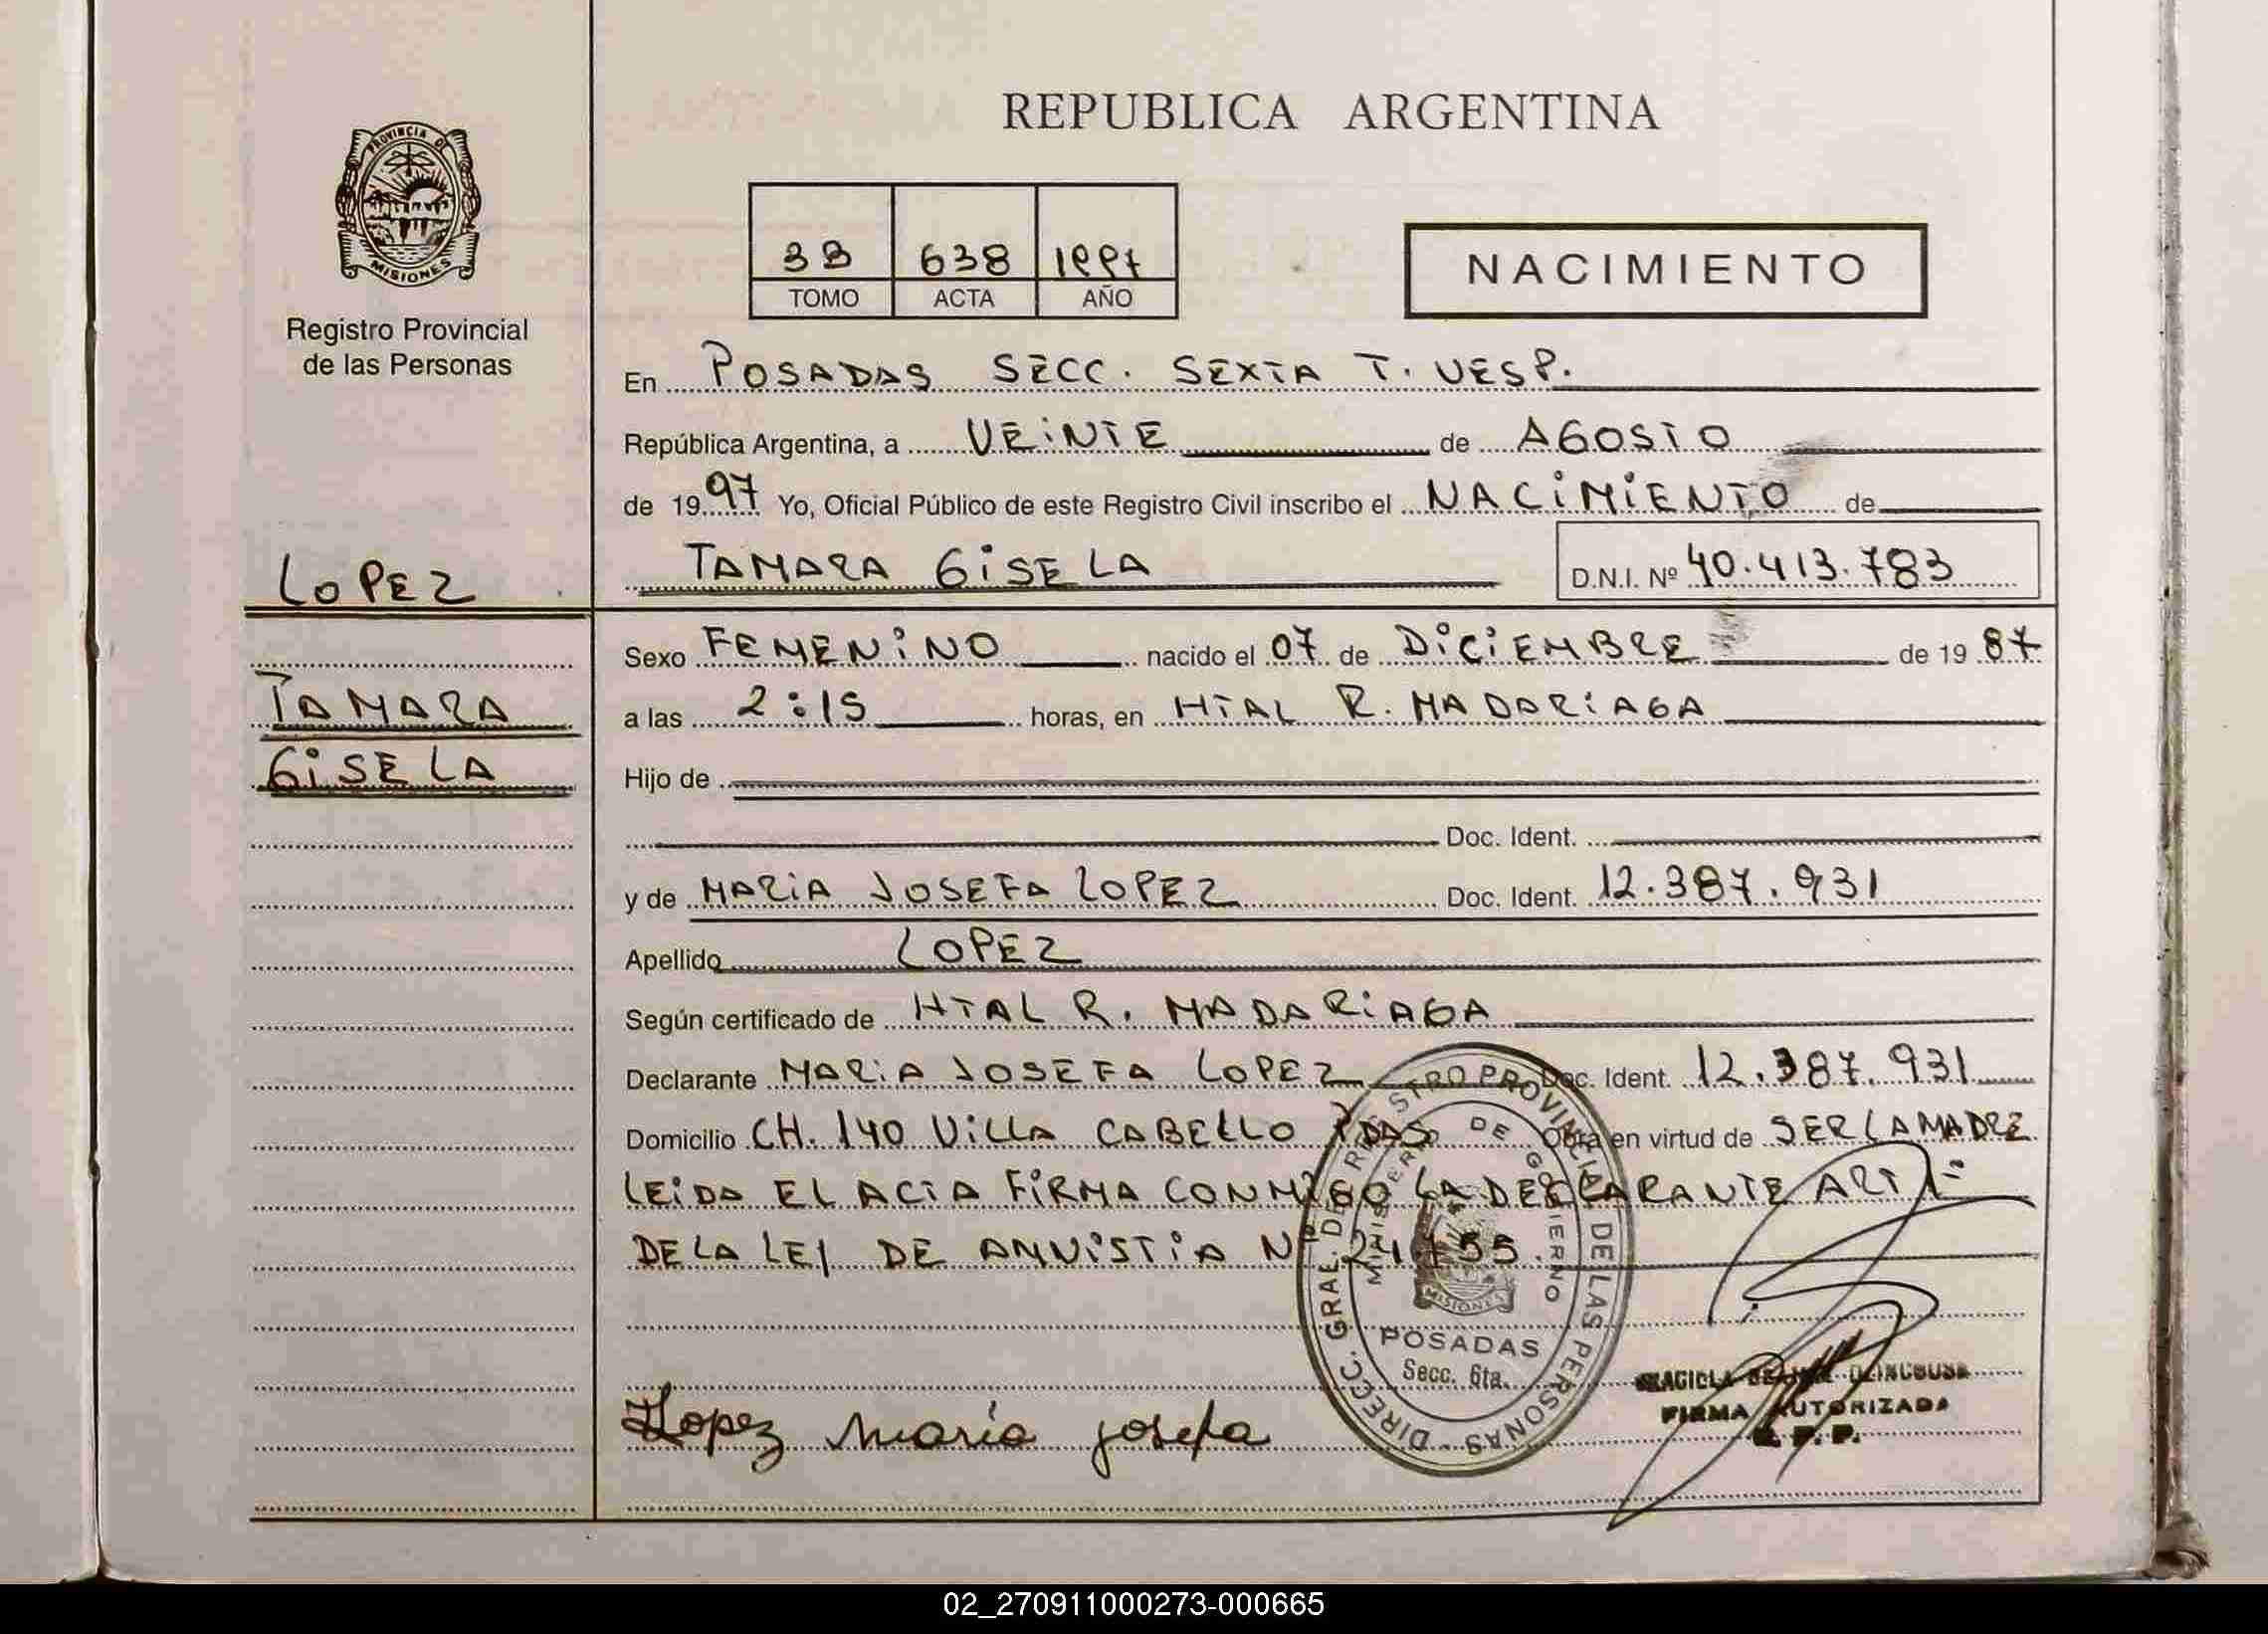 REPUBLICA ARGENTINA
PROVINCIA DE
MISIONES
Registro Provincial
de las Personas
3B 638 1997
TOMO ACTA AÑO
NACIMIENTO
En POSADAS SECC. SEXTA T. VESP.
República Argentina, a VEINTE de AGOSTO
de 1997 Yo, Oficial Público de este Registro Civil inscribo el NACIMIENTO de
TAMARA GISELA D.N.I. Nº 40.413.783
LOPEZ
TAMARA
GISELA
Sexo FEMENINO nacido el 07 de DICIEMBRE de 1987
a las 2:15 horas, en HTAL R. MADARIAGA
Hijo de
Doc. Ident.
y de MARIA JOSEFA LOPEZ Doc. Ident. 12.387.931
Apellido LOPEZ
Según certificado de HTAL R. MADARIAGA
Declarante MARIA JOSEFA LOPEZ Doc. Ident. 12.387.931
Domicilio CH. 140 VILLA CABELLO PDAS Obra en virtud de SER LA MADRE
LEIDA EL ACTA FIRMA CONMIGO LA DECLARANTE ART 1=
DE LA LEY DE AMNISTIA Nº 24.755.
DIRECC. GRAL. DE REGISTRO PROVINCIAL DE LAS PERSONAS
MINISTERIO DE GOBIERNO
MISIONES
POSADAS
Secc. 6ta.
Lopez María josefa
FIRMA AUTORIZADA
R. P. P.
02_270911000273-000665